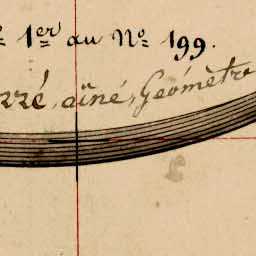 1er au No 199.
rré, aîné, Géomètre